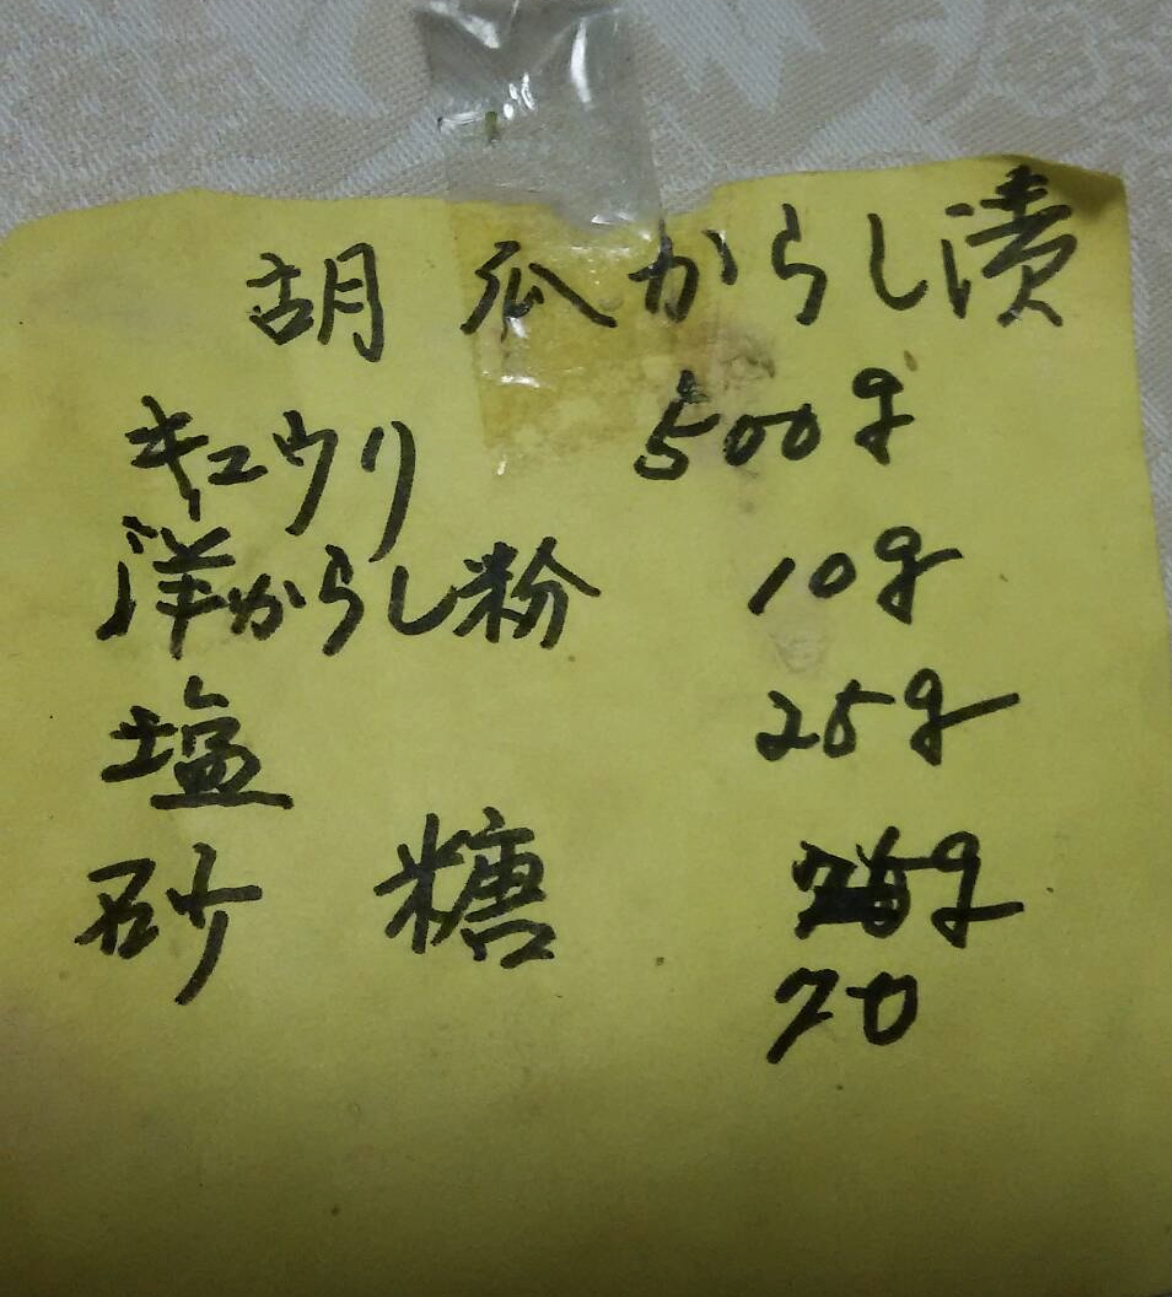 胡瓜からし漬
キュウリ 500g
洋からし粉 10g
塩 25g
砂糖 g
70